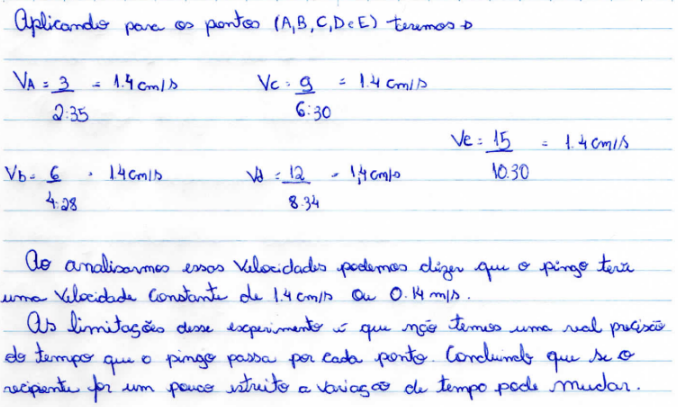 Aplicando para os pontos (A,B,C,D e E) teremos →
VA = 3/2:35 = 1.4 cm/s    Vc = 9/6:30 = 1.4 cm/s
Ve = 15/10.30 = 1.4 cm/s
Vb = 6/4:28 = 1.4 cm/s    Vd = 12/8.34 = 1,4 cm/s
Ao analisarmos essas velocidades podemos dizer que o pingo terá
uma velocidade constante de 1.4 cm/s ou 0.14 m/s.
As limitações desse experimento é que não temos uma real precisão
do tempo que o pingo passa por cada ponto. Concluindo que se o
recipiente for um pouco estreito a variação de tempo pode mudar.